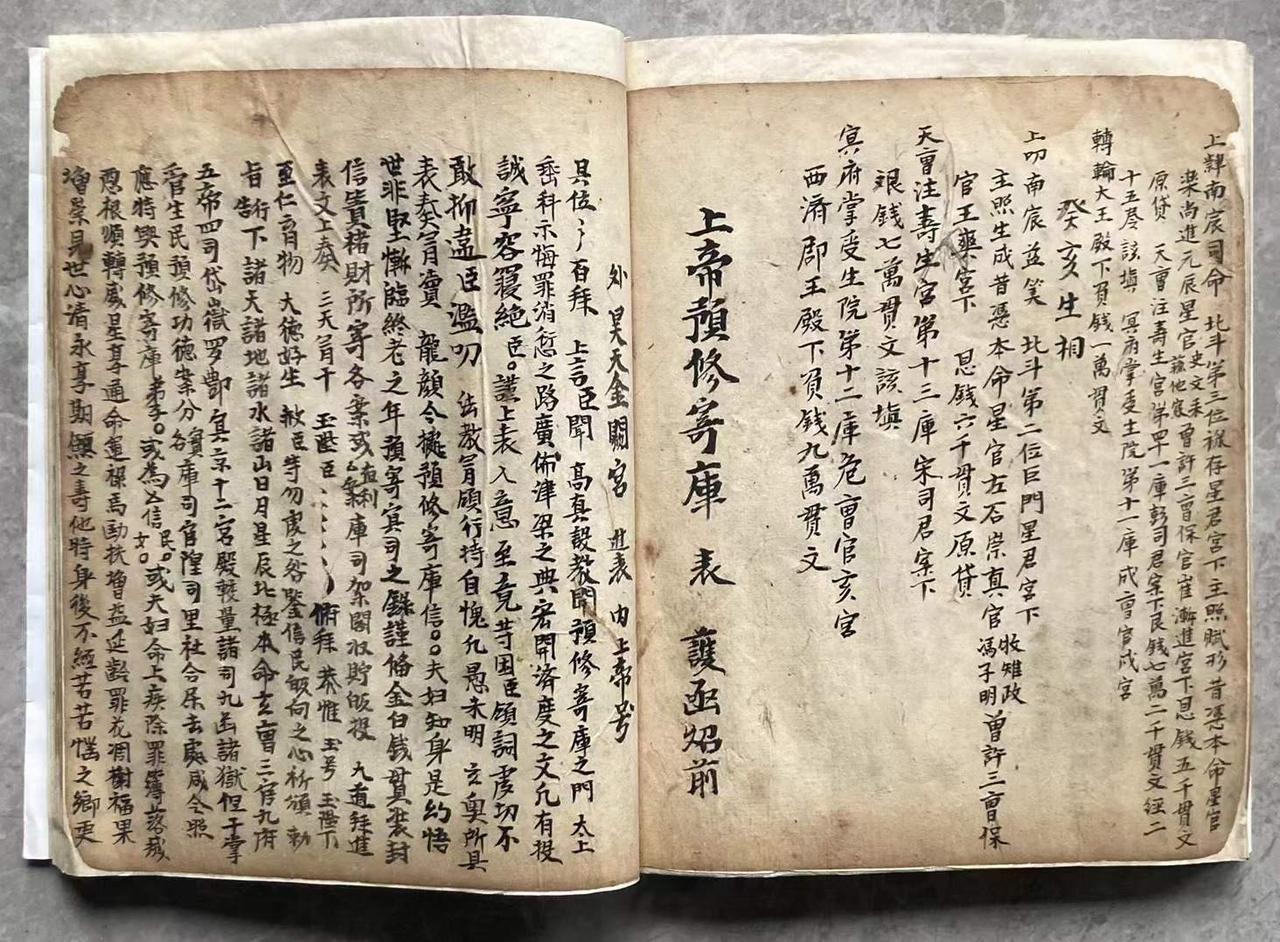 上詳南宸司命　北斗第三位祿存星君宮下主照賦形昔憑本命星官
梁尚進元辰星官史文來蘓他宸曾許三曹保官崔漸進宮下恩錢五千貫文
原貸　天曹注壽生宮第四十一庫彭司君案下艮錢七萬二千貫文経二
十五卷該填　冥府掌受生院第十一庫成曹官戍宮
轉輪大王殿下負錢一萬貫文
癸亥生相
上叩南宸益笑　北斗第二位巨門星君宮下
主照生成昔憑本命星官左石崇真官收雉政馮子明曾許三曹保
官王爽宮下　恩錢六千貫文原貸
天曹注壽生宮第十三庫宋司君案下
艰錢七萬貫文該填
冥府掌受生院第十二庫危曹官亥宮
西濟郎王殿下負錢九萬貫文
上帝預修寄庫　表　護函炤前
外　昊天金闕宮　進表　内上帝号
具位〻百拜　上言臣聞　高真設教開預修寄庫之門　太上
埀科示悔罪消愆之路廣佈津梁之典宏開済度之文凢有投
誠寧容寢絶臣〇謹上表入意　至竟苛囙臣領詞虔切不
敢抑違臣濫叨　法教冐領行持自愧凢愚未明　玄奥所具
表表奏冐瀆　龍顔今據預修寄庫信〇〇夫妇知身是幻悟
世非堅慚臨終老之年預寄冥司之錄謹偹金白錢貫裝封
信賫禇財所寄各案或查利某案庫司架閣收貯皈投　九道拜進
表文上奏　三天冐干　玉陛臣〻〻〻〻俯拜　恭惟　玉号玉陛下
至仁育物　大德好生　赦臣等勿虔之咎鑒信民皈向之心祈頒　勅
旨告行下諸天諸地諸水諸山日月星辰北極本命玄曹三官九府
五帝四司岱嶽罗酆　冥京十二宮殿較量諸司九函諸獄但干掌
管生民預修功德案分各賓庫司官隍司里社合属去處咸令照
應特與預修寄庫弟子〇或為信民〇信女〇或夫妇命上疾除罪簿落滅
惡根順轉威星享通命運祿馬勋扶增益延齡罪花凋樹福果
增榮見世心清永享期頤之壽他時身後不經苦苦惱之鄉更